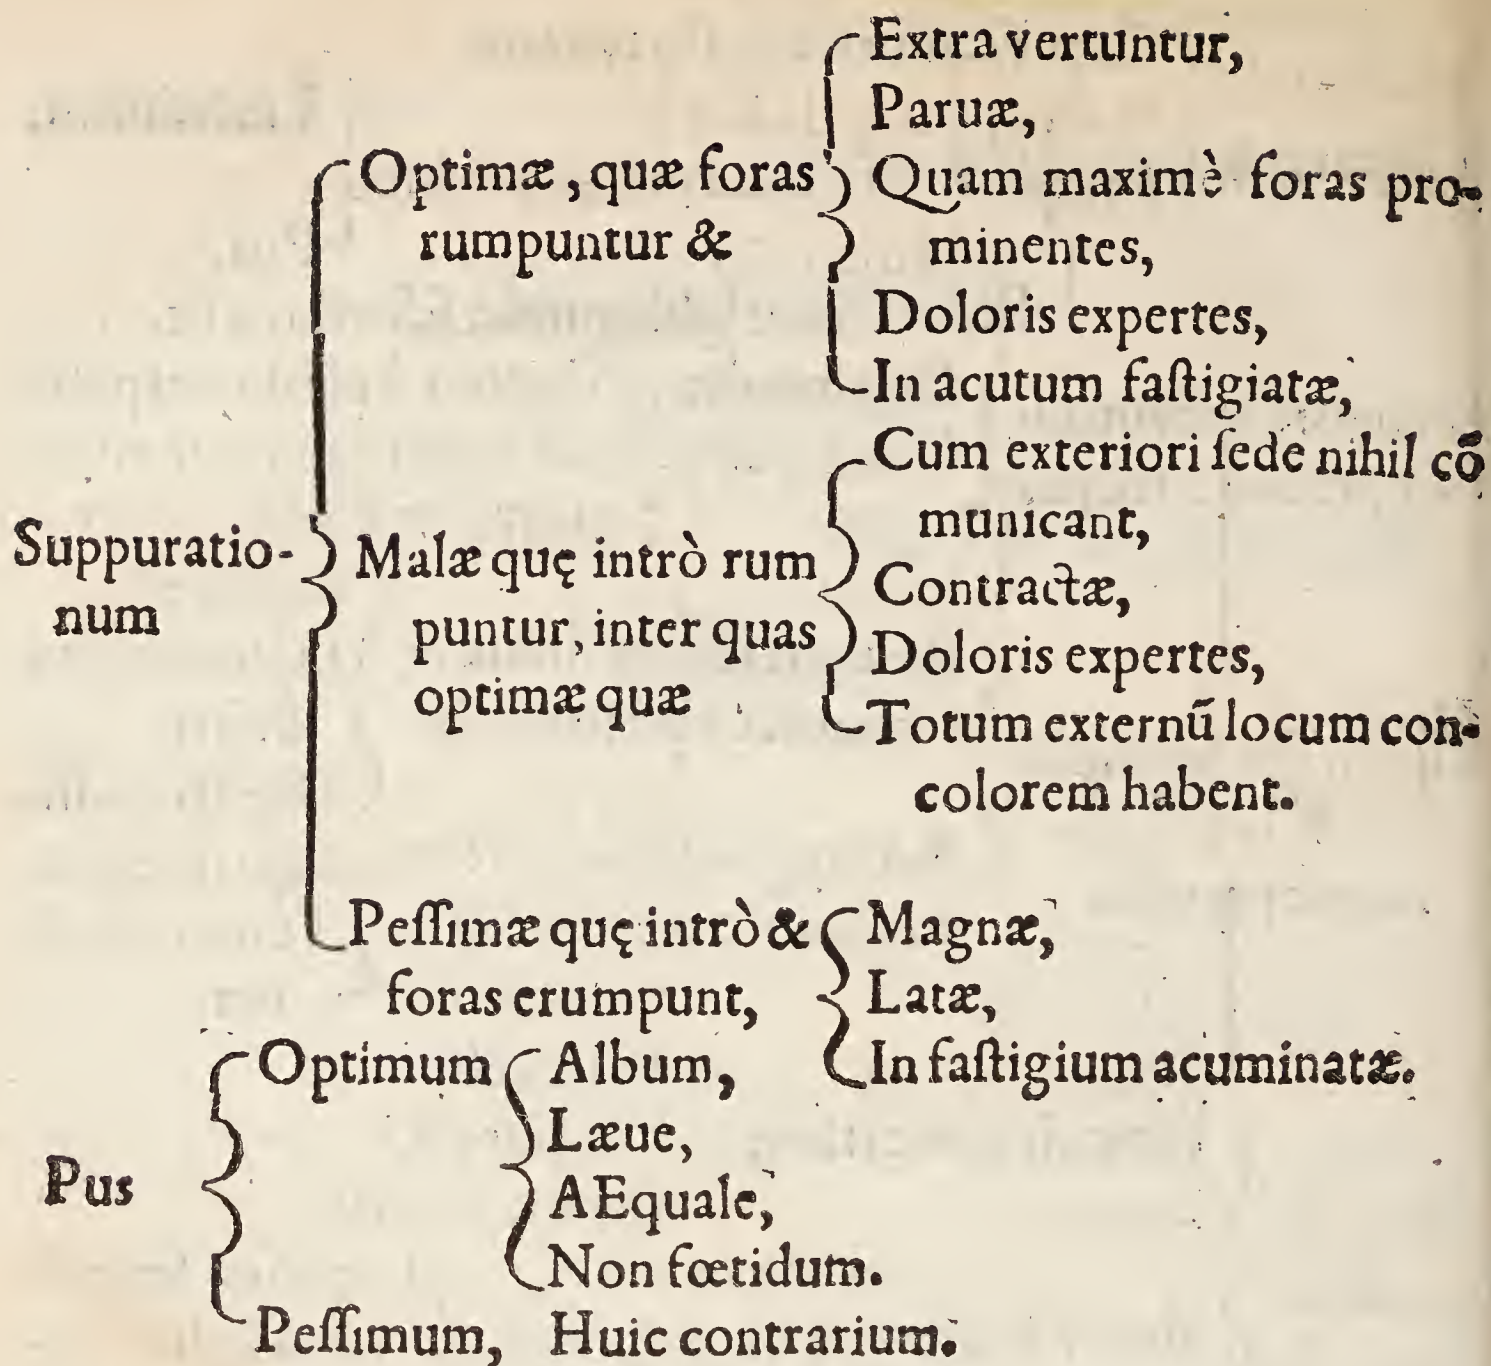 Suppuratio-
num
Optimæ, quæ foras
rumpuntur &
Extra vertuntur,
Paruæ,
Quam maximè foras pro-
minentes,
Doloris expertes,
In acutum faſtigiatæ,
Malæ quę intrò rum
puntur, inter quas
optimæ quæ
Cum exteriori ſede nihil cō
municant,
Contractæ,
Doloris expertes,
Totum externū locum con-
colorem habent.
Peſſimæ quę intrò &
foras erumpunt,
Magnæ,
Latæ,
In faſtigium acuminatæ.
Pus
Optimum
Album,
Læue,
AEquale,
Non fœtidum.
Peſſimum, Huic contrarium.